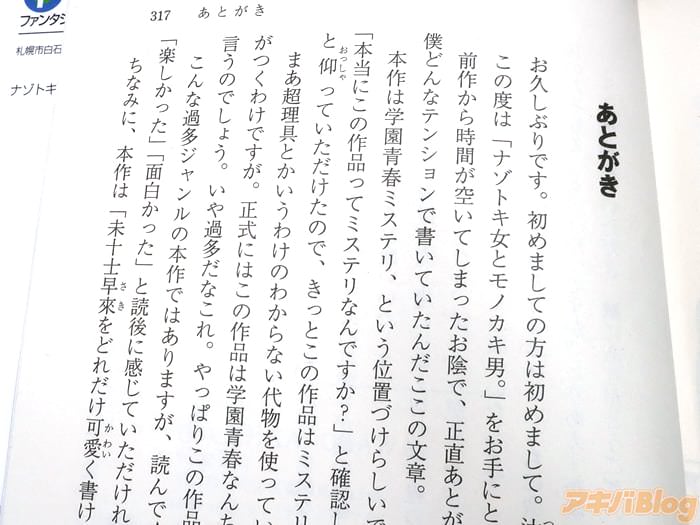 317 あとがき
あとがき
お久しぶりです。初めましての方は初めまして。
この度は「ナゾトキ女とモノカキ男。」をお手にと
前作から時間が空いてしまったお陰で、正直あとが
僕どんなテンションで書いていたんだここの文章。
本作は学園青春ミステリ、という位置づけらしいで
「本当にこの作品ってミステリなんですか?」と確認し
と仰っていただけたので、きっとこの作品はミステリ
まあ超理具とかいうわけのわからない代物を使ってい
がつくわけですが。正式にはこの作品は学園青春なんち
言うのでしょう。いや過多だなこれ。やっぱりこの作品
こんな過多ジャンルの本作ではありますが、読んで
「楽しかった」「面白かった」と読後に感じていただけれ
ちなみに、本作は「未十士早來をどれだけ可愛く書け
ファンタジ
札幌市白石
ナゾトキ
アキバBlog